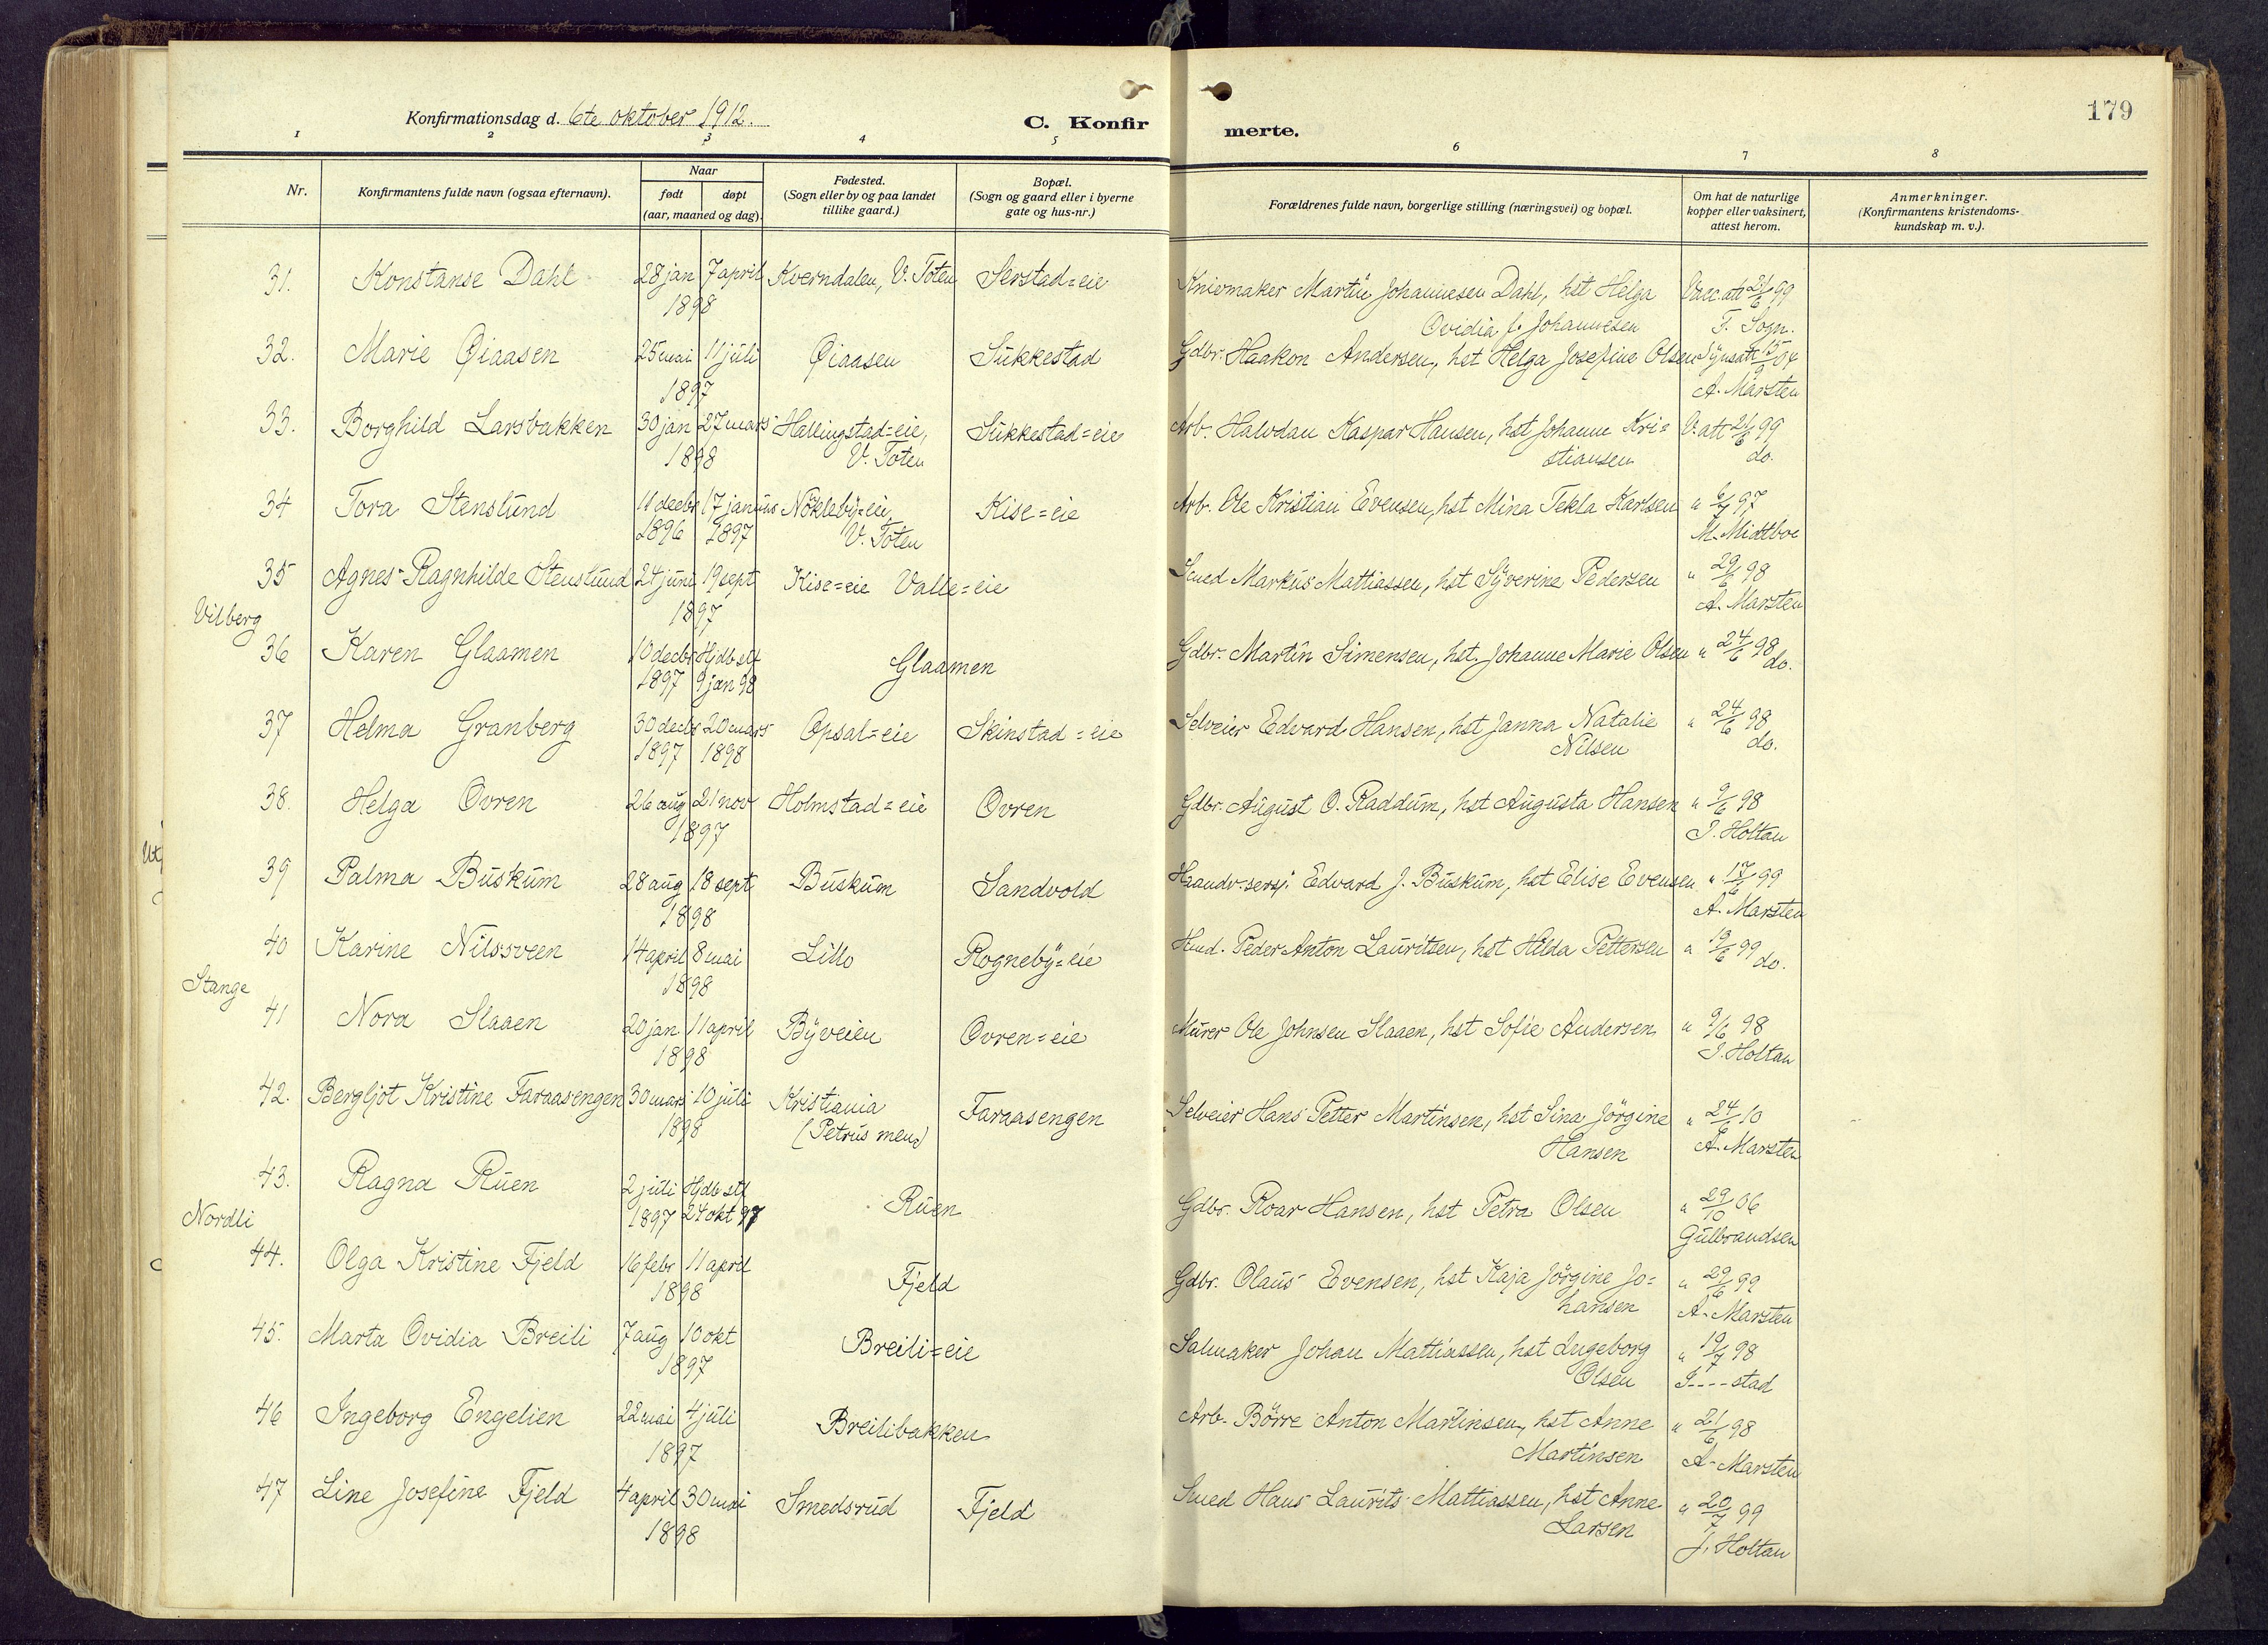 Konfirmationsdag d. 6te oktober 1912.
C. Konfirmerte.
179
1 2 3 4 5 6 7 8
Nr. Konfirmantens fulde navn (ogsaa efternavn). Naar født døpt (aar, maaned og dag). Fødested. (Sogn eller by og paa landet tillike gaard.) Bopæl. (Sogn og gaard eller i byerne gate og hus-nr.) Forældrenes fulde navn, borgerlige stilling (næringsvei) og bopæl. Om hat de naturlige kopper eller vaksinert, attest herom. Anmerkninger. (Konfirmantens kristendoms-kundskap m. v.).
31. Konstanse Dahl 28 jan 7 april Kverndalen, V. Toten Serstad=eie Knivmaker Martin Johannesen Dahl, hst Helga Vacc.att 21/6 99
1898 Ovidia f. Johannesen T. Sogn.
32. Marie Øiaasen 25 mai 11 juli Øiaasen Sukkestad Gdbr. Haakon Andersen, hst Helga Josefine Olsen Synsatt 15/9 04
1897 A. Marsten
33. Borghild Larsbakken 30 jan 27 mars Hallingstad=eie, Sukkestad=eie Arb. Halvdan Kaspar Hansen, hst Johanne Kri= V. att 21/6 99
1898 V. Toten stiansen do.
34 Tora Stenslund 11 decbr 17 januar Nökleby=ei, Kise=eie Arb. Ole Kristian Evensen, hst Mina Tekla Karlsen " 6/7 97
1896 1897 V. Toten M. Midtboe
35 Agnes Ragnhilde Stenslund 24 juni 19 sept Kise=eie Valle=eie Smed Markus Mattiassen, hst Syverine Pedersen " 29/6 98
Vilberg 1897 A. Marsten
36 Karen Glaamen 10 decbr Hjdb stf Glaamen Gdbr. Martin Simensen, hst. Johanne Marie Olsen " 24/6 98
1897 9 jan 98 do.
37 Helma Granberg 30 decbr 20 mars Opsal=eie Skinstad=eie Selveier Edvard Hansen, hst Janna Natalie " 24/6 98
1897 1898 Nilsen do.
38. Helga Ovren 26 aug 21 nov Holmstad=eie Ovren Gdbr. August O. Raddum, hst Augusta Hansen " 9/6 98
1897 J. Holtan
39 Palma Buskum 28 aug 18 sept Buskum Sandvold Haandv.sersj. Edvard J. Buskum, hst Elise Evensen " 17/6 99
1898 A. Marsten
40 Karine Nilssveen 14 april 8 mai Lillo Rogneby=eie Hmd. Peder Anton Lauritsen, hst Hilda Pettersen " 19/6 99
Stange 1898 do.
41 Nora Slaaen 20 jan 11 april Byveien Ovren=eie Murer Ole Johnsen Slaaen, hst Sofie Andersen " 9/6 98
1898 J. Holtan
42. Bergljot Kristine Faraasengen 30 mars 10 juli Kristiania Faraasengen Selveier Hans Petter Martinsen, hst Sina Jörgine " 24/6 10
1898 (Petrus men) Hansen A. Marsten
43. Ragna Ruen 2 juli Hjdb stf Ruen Gdbr. Roar Hansen, hst Petra Olsen " 29/10 06
Nordli 1897 24 okt 97 Gulbrandsen
44. Olga Kristine Fjeld 16 febr 11 april Fjeld Gdbr. Olaus Evensen, hst Kaja Jörgine Jo= " 29/6 99
1898 hansen A. Marsten
45. Marta Ovidia Breili 7 aug 10 okt Breili=eie Salmaker Johan Mattiassen, hst Ingeborg " 19/7 98
1897 Olsen J----stad
46 Ingeborg Engelien 22 mai 4 juli Breilibakken Arb. Börre Anton Martinsen, hst Anne " 21/6 98
1897 Martinsen A. Marsten
47 Line Josefine Fjeld 4 april 30 mai Smedsrud Fjeld Smed Hans Laurits Mattiassen, hst Anne " 20/7 99
1898 Larsen J. Holtan